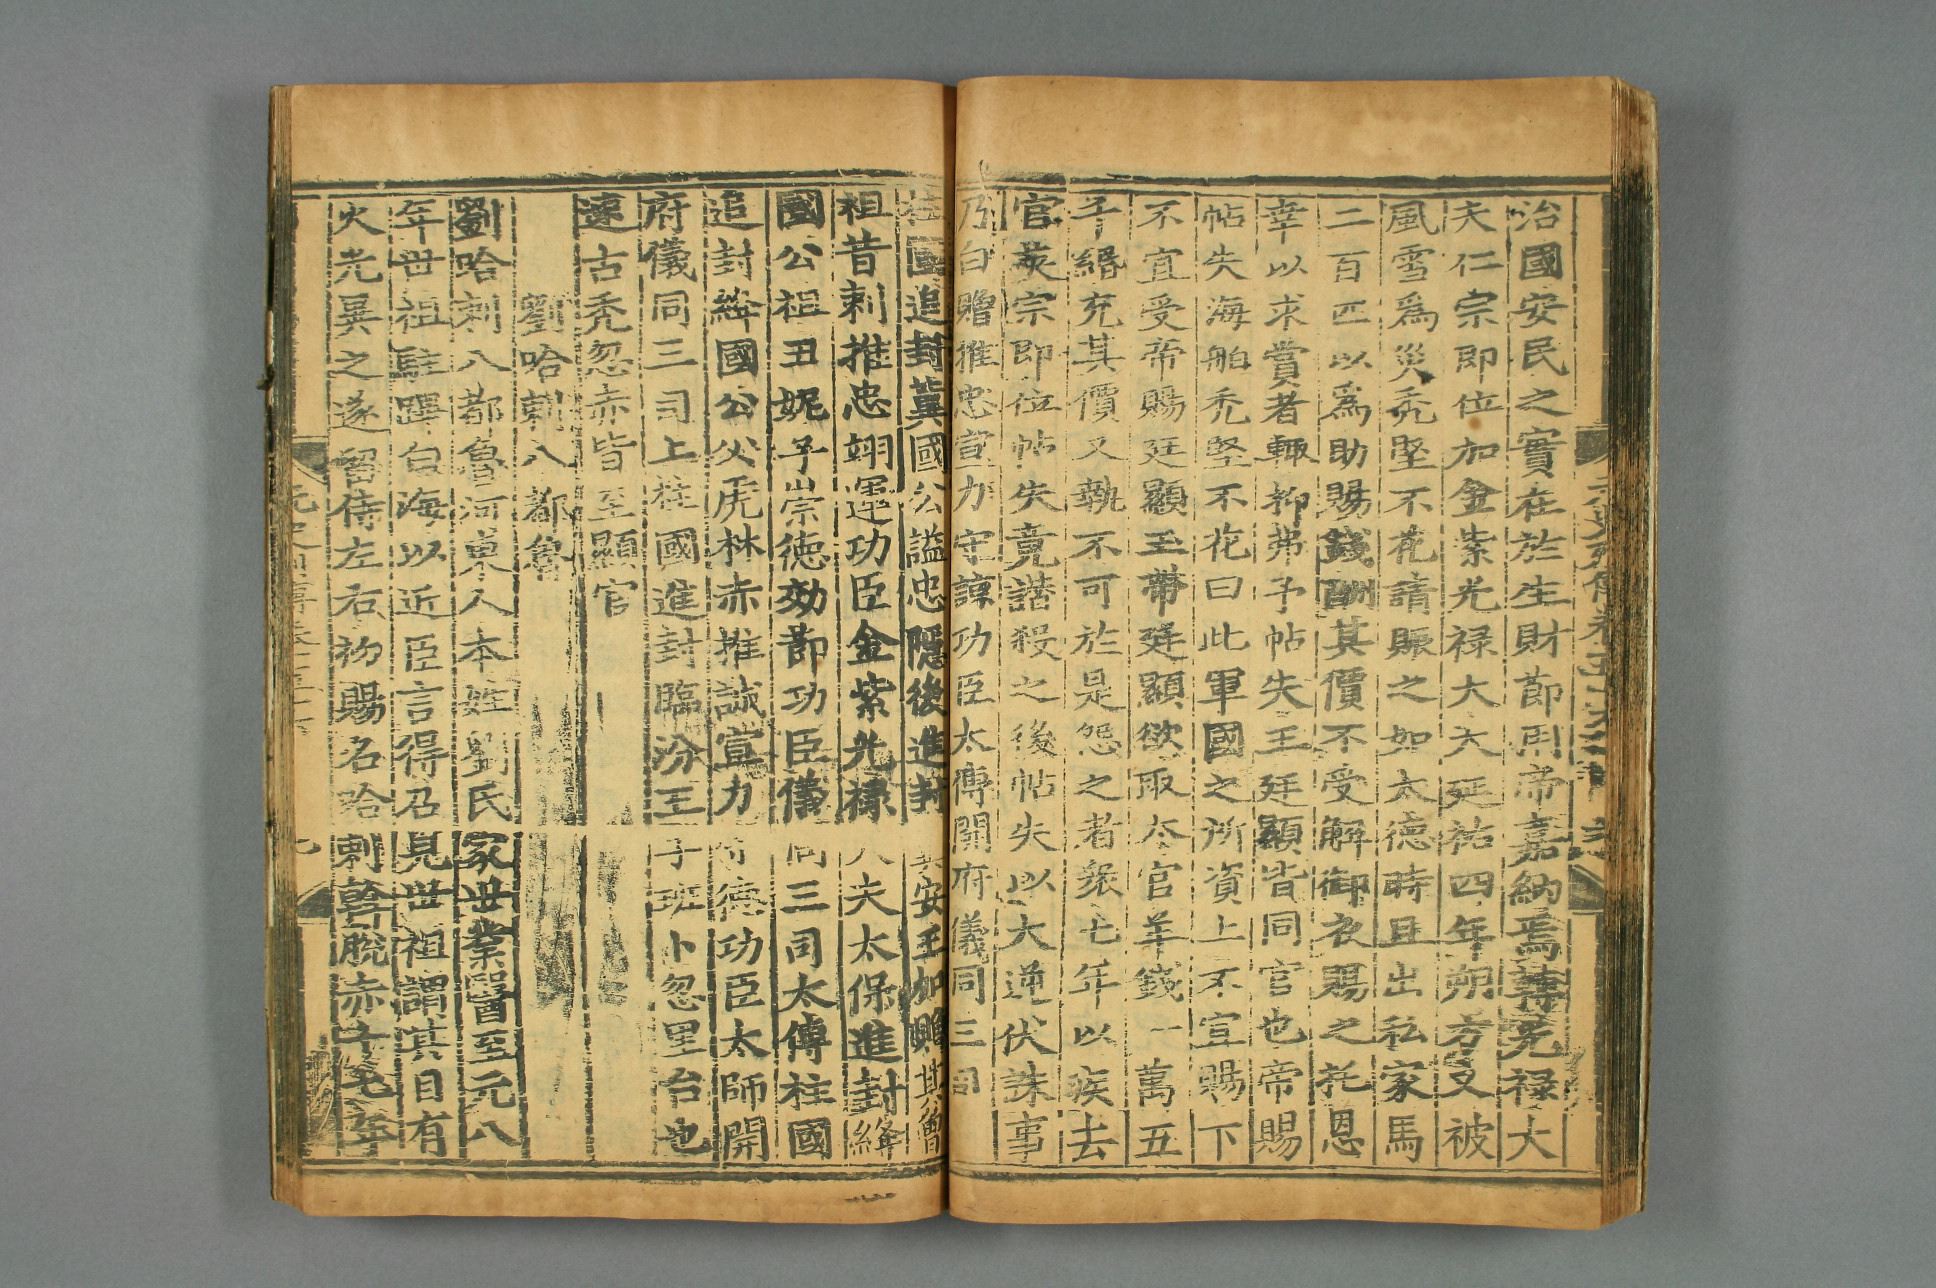 治國安民之實在於生財節用帝嘉納焉尋免祿大
夫仁宗即位加金紫光禄大夫延祐四年朔方又被
風雪爲災禿堅不花請賑之如大德時且出私家馬
二百匹以爲助賜錢酬其價不受解御衣賜之托恩
幸以求賞者輒抑弗予帖失王廷顯皆同官也帝賜
帖失海舶禿堅不花曰此軍國之所資上不宜賜下
不宜受帝賜廷顯玉帶廷顯欲取太官羊錢一萬五
千緡充其價又執不可於是怨之者衆七年以疾去
官英宗即位帖失竟譖殺之後帖失以大逆伏誅事
乃白贈推忠宣力守諒功臣太傅開府儀同三司
柱國追封冀國公謚忠隱後進封冀安王加贈其曾
祖昔剌推忠翊運功臣金紫光禄大夫太保進封絳
國公祖丑妮子崇德効節功臣儀同三司太傅柱國
追封絳國公父虎林赤推誠宣力守德功臣太師開
府儀同三司上柱國進封臨汾王子班卜忽里台也
速古禿忽赤皆至顯官
劉哈剌八都魯
劉哈剌八都魯河東人本姓劉氏家世業醫至元八
年世祖駐蹕白海以近臣言得召見世祖謂其目有
火光異之遂留侍左右初賜名哈剌斡脫赤十七年